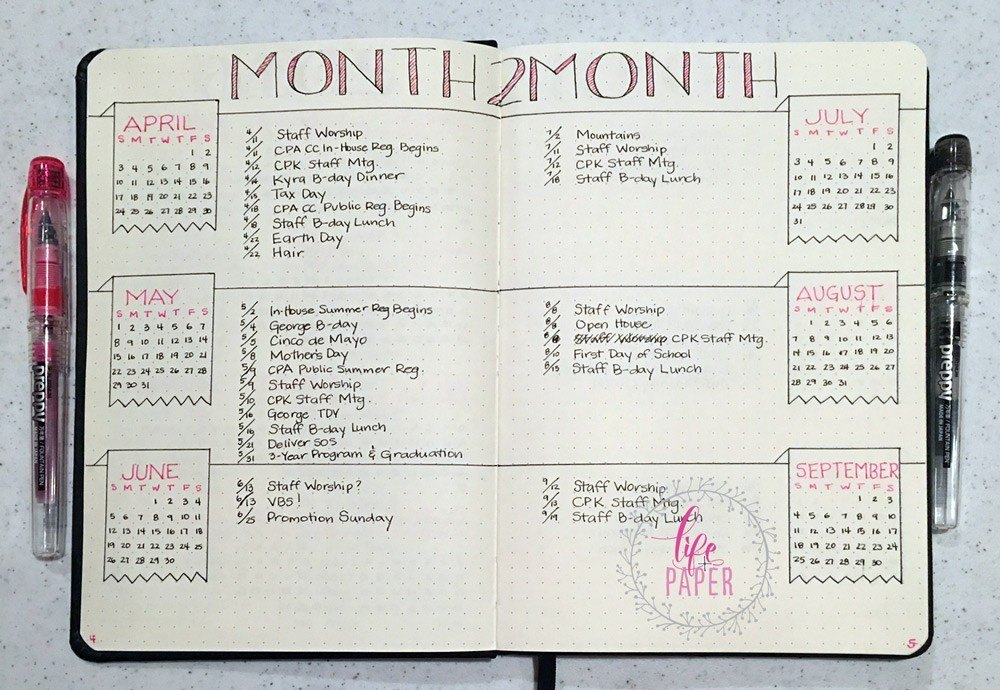 MONTH 2 MONTH
APRIL
S M T W T F S
1 2
3 4 5 6 7 8 9
10 11 12 13 14 15 16
17 18 19 20 21 22 23
24 25 26 27 28 29 30
4/11 Staff Worship
4/11 CPA CC In-House Reg. Begins
4/12 CPK Staff Mtg.
4/16 Kyra B-day Dinner
4/15 Tax Day
4/18 CPA CC Public Reg. Begins
4/18 Staff B-day Lunch
4/22 Earth Day
4/22 Hair
MAY
S M T W T F S
1 2 3 4 5 6 7
8 9 10 11 12 13 14
15 16 17 18 19 20 21
22 23 24 25 26 27 28
29 30 31
5/2 In-House Summer Reg Begins
5/4 George B-day
5/5 Cinco de Mayo
5/8 Mother's Day
5/9 CPA Public Summer Reg.
5/9 Staff Worship
5/10 CPK Staff Mtg.
5/16 George TDY
5/16 Staff B-day Lunch
5/21 Deliver SOS
5/31 3-Year Program & Graduation
JUNE
S M T W T F S
1 2 3 4
5 6 7 8 9 10 11
12 13 14 15 16 17 18
19 20 21 22 23 24 25
26 27 28 29 30
6/13 Staff Worship?
6/13 VBS!
6/25 Promotion Sunday
4
JULY
S M T W T F S
1 2
3 4 5 6 7 8 9
10 11 12 13 14 15 16
17 18 19 20 21 22 23
24 25 26 27 28 29 30
31
7/2 Mountains
7/11 Staff Worship
7/12 CPK Staff Mtg.
7/18 Staff B-day Lunch
AUGUST
S M T W T F S
1 2 3 4 5 6
7 8 9 10 11 12 13
14 15 16 17 18 19 20
21 22 23 24 25 26 27
28 29 30 31
8/8 Staff Worship
8/8 Open House
Staff Worship CPK Staff Mtg.
8/10 First Day of School
8/15 Staff B-day Lunch
SEPTEMBER
S M T W T F S
1 2 3
4 5 6 7 8 9 10
11 12 13 14 15 16 17
18 19 20 21 22 23 24
25 26 27 28 29 30
9/12 Staff Worship
9/13 CPK Staff Mtg.
9/19 Staff B-day Lunch
life + PAPER
5
preppy
FOUNTAIN PEN
MADE IN JAPAN
preppy
FOUNTAIN PEN
MADE IN JAPAN